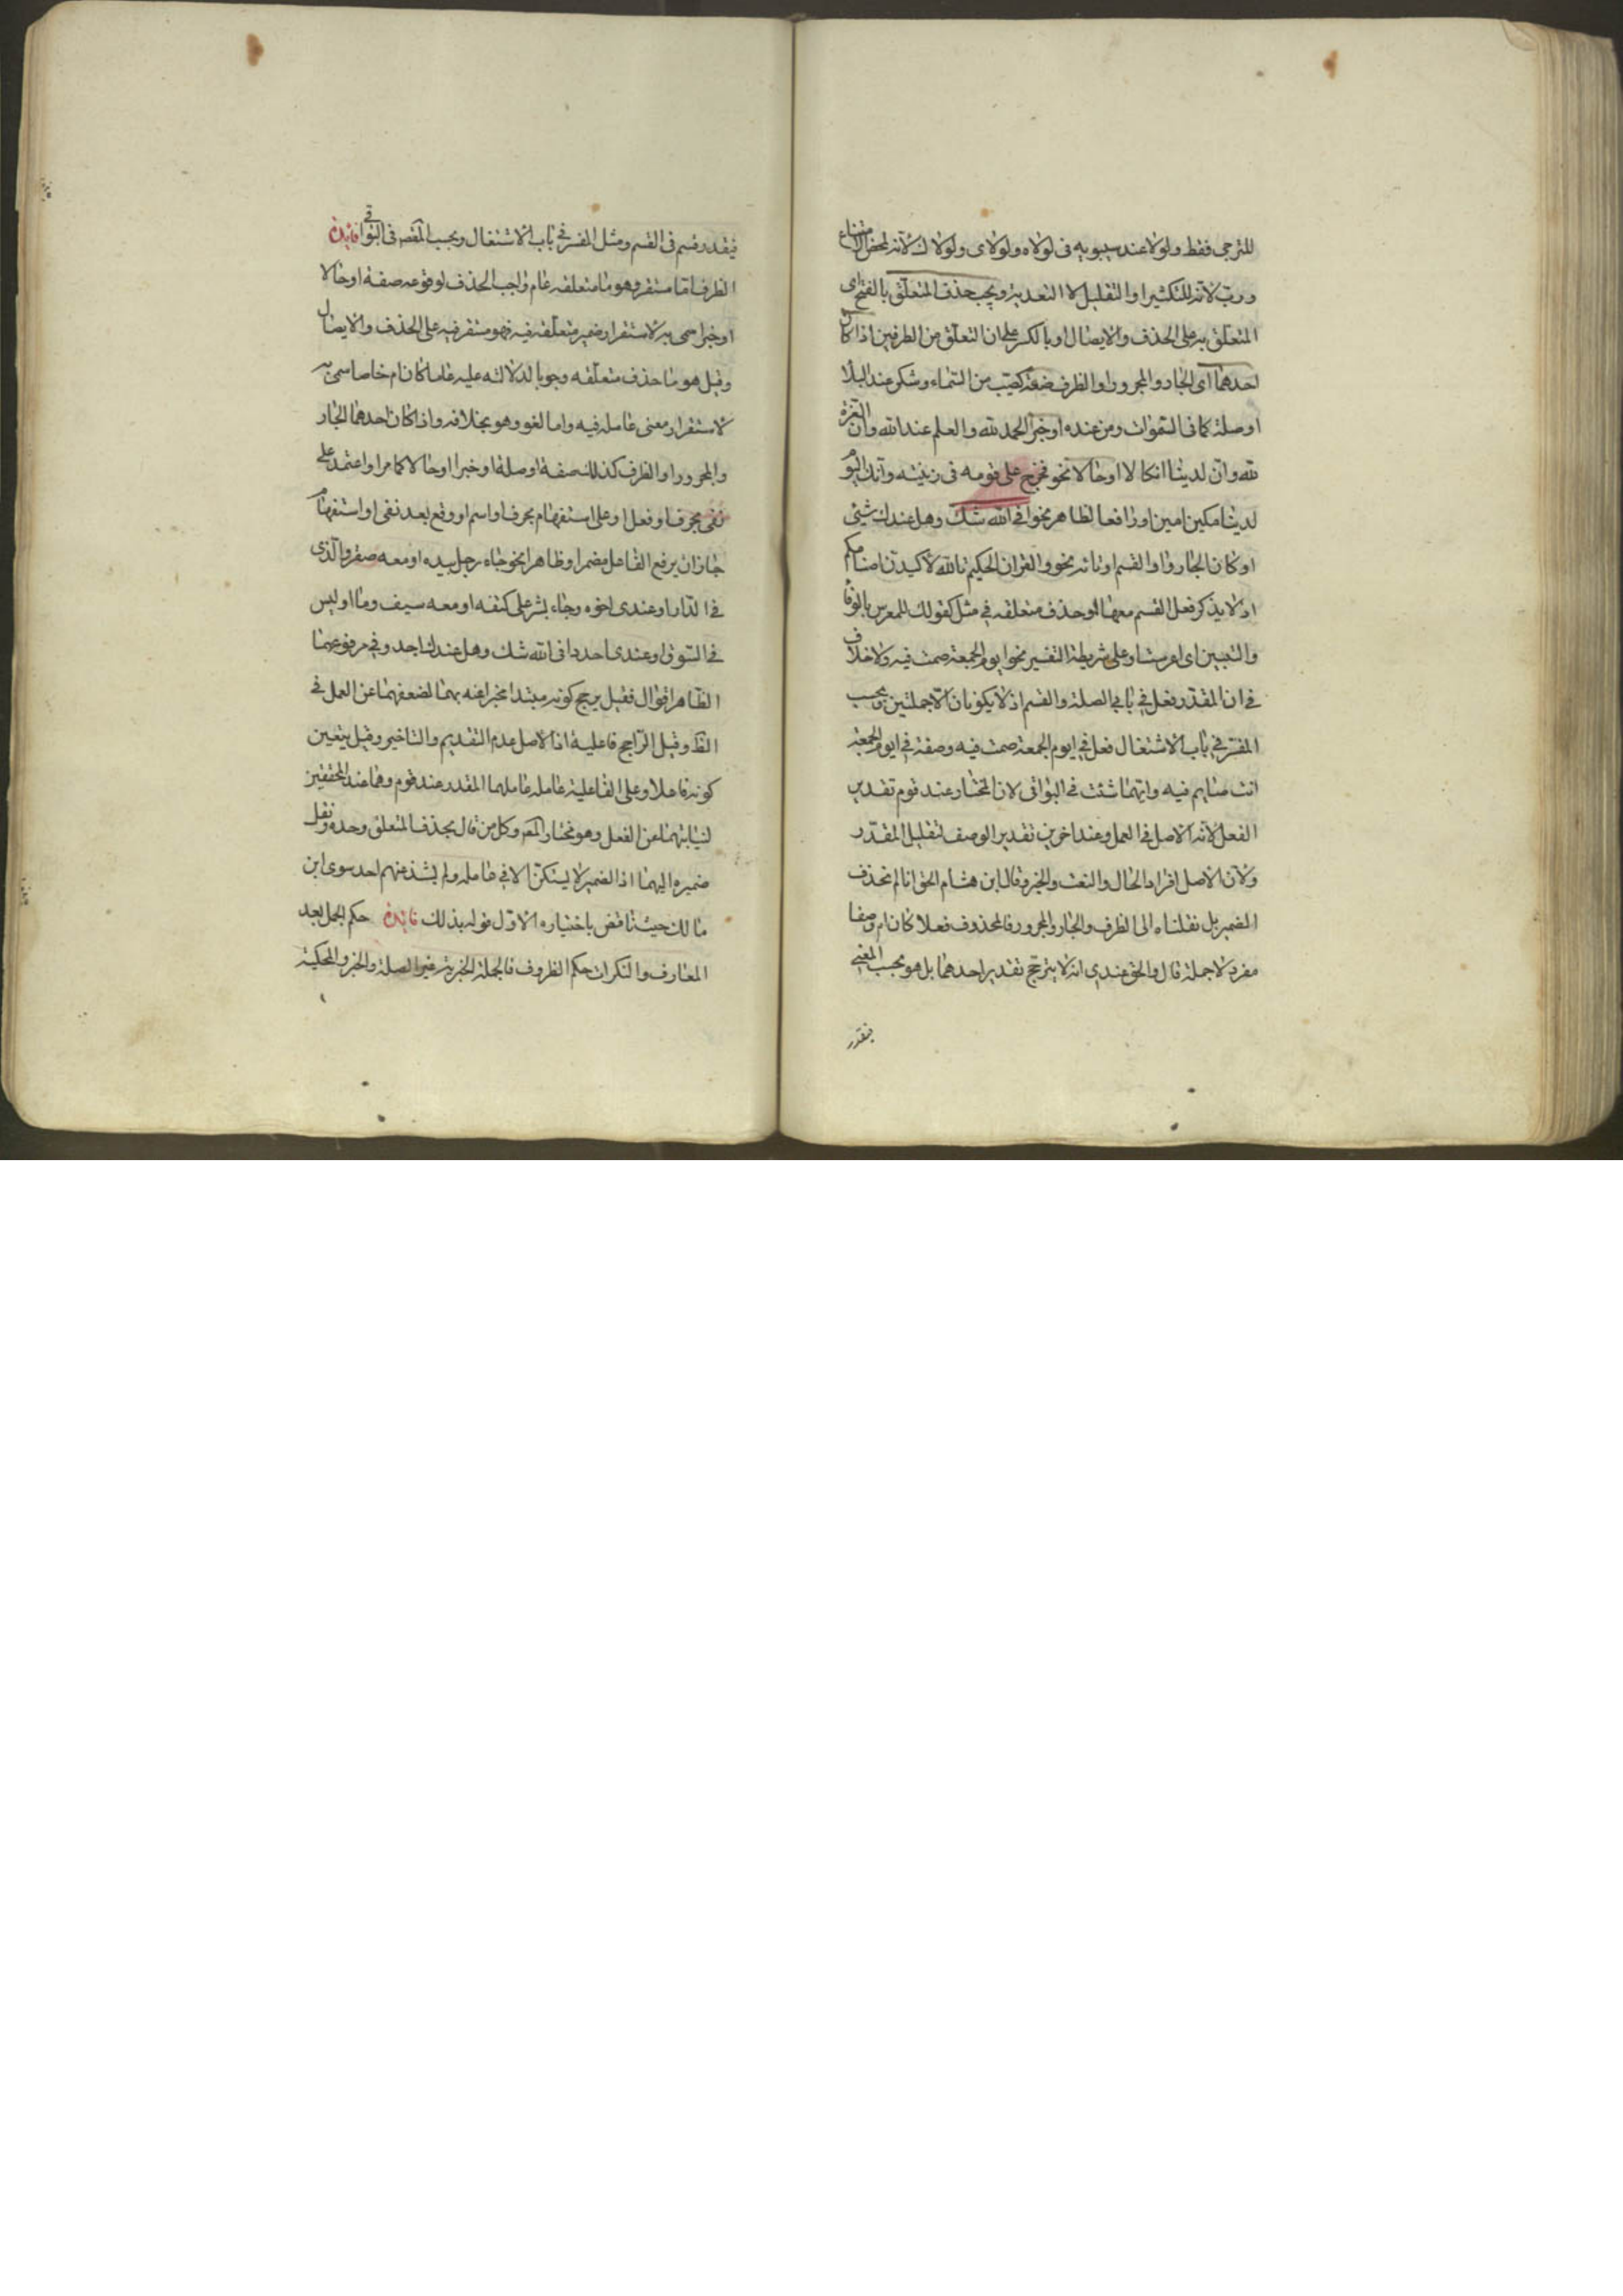 للترجى فقط ولولا عند سيبويه فى لولاه ولولاى ولولاك لانه لمحض الامتناع
ورب لانه للتكثير او التقليل لا التعدية ويجب حذف المتعلق بالفتح اى
المتعلق به على الحذف والايصال او بالكسر على ان التعلق من الطرفين اذا كان
احدهما اى الجار والمجرور او الظرف صفة كصيب من السماء وشكر عند البلا
او صلة كما فى السموات ومن عنده او خبرا الحمد لله والعلم عند الله وان العزة
لله وان لدينا انكالا او حالا نحو فخرج على قومه فى زينته وانك اليوم
لدينا مكين امين او رافعا لظاهر نحو افى الله شك وهل عندك شئ
او كان الجار واو القسم او تائه نحو والقران الحكيم تالله لاكيدن اصنامكم
اذ لا يذكر فعل القسم معهما او حذف متعلقه فى مثل كقولك للمعرس بالوفا
والبنين اى اعرست او على شريطة التفسير نحو ايوم الجمعة صمت فيه ولا خلاف
فى ان المقدر فعل فى بابى الصلة والقسم اذ لا يكونان الا جملتين ويجب
المفسر فى باب الاشتغال فعل فى ايوم الجمعة صمت فيه وصفة فى ايوم الجمعة
انت صايم فيه وايهما شئت فى البواقى لان المختار عند قوم تقدير
الفعل لانه الاصل فى العمل وعند اخرين تقدير الوصف لتقليل المقدر
ولان الاصل افراد الحال والنعت والخبر وقال ابن هشام الحق انا لم نحذف
الضمير بل نقلناه الى الظرف والجار والمجرور فالمحذوف فعلا كان ام وصفا
مفرد لا جملة قال والحق عندى انه لا يترجح تقدير احدهما بل هو بحسب المعنى
فيقدر
فيقدر قسم فى القسم ومثل المفسر فى باب الاشتغال وبحسب المقصـ فى البواقى فائدة
الظرف اما مستقر وهو ما متعلقه عام واجب الحذف لوقوعه صفة او حالا
او خبرا سمى به لاستقرار ضمير متعلقه فيه فهو مستقر فيه على الحذف والايصال
وقيل هو ما حذف متعلقه وجوبا لدلالته عليه عاما كان ام خاصا سمى به
لاستقرار معنى عامله فيه واما لغو وهو بخلافه واذا كان احدهما الجار
والمجرور او الظرف كذلك صفة او صلة او خبرا او حالا كما مر او اعتمد على
نفى بحرف او فعل او على استفهام بحرف او اسم او وقع بعد نفى او استفهام
جاز ان يرفع الفاعل مضمرا او ظاهرا نحو جاء رجل بيده او معه صقر والذى
فى الدار او عندى اخوه وجاء بشر على كتفه او معه سيف وما او ليس
فى السوق او عندى احد وافى الله شك وهل عندك احد وفى مرفوعهما
الظاهر اقوال فقيل يرجح كونه مبتدا مخبرا عنه بهما لضعفهما عن العمل فى
الظـ وقيل الراجح فاعلية اذ الاصل عدم التقديم والتاخير وقيل يتعين
كونه فاعلا وعلى الفاعلية عامله عاملهما المقدر عند قوم وهما عند المحققين
لنيابتهما عن الفعل وهو مختار المصـ وكل من قال بحذف المتعلق وحده ونقل
ضميره اليهما اذ الضمير لا يستكن الا فى عامله ولم يشذ عنهم احد سوى ابن
مالك حيث ناقض باختياره الاول قوله بذلك فائدة حكم الجمل بعد
المعارف والنكرات حكم الظروف فالجملة الخبرية غير الصلة والخبر والمحكية